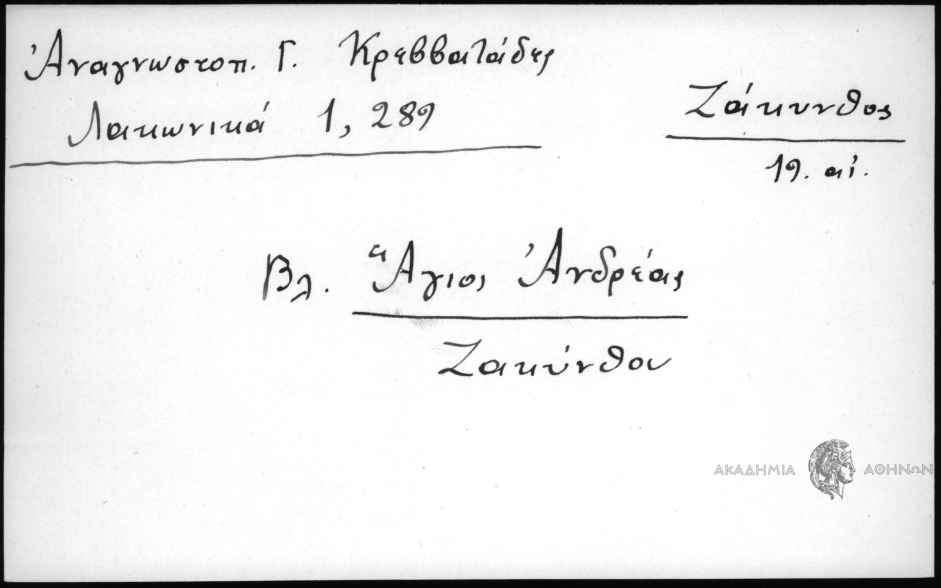 Ἀναγνωστοπ. Γ. Κρεββατάδες
Λακωνικά 1, 289
Ζάκυνθος
19. αἰ.
Βλ. Ἅγιος Ἀνδρέας
Ζακύνθου
ΑΚΑΔΗΜΙΑ ΑΘΗΝΩΝ